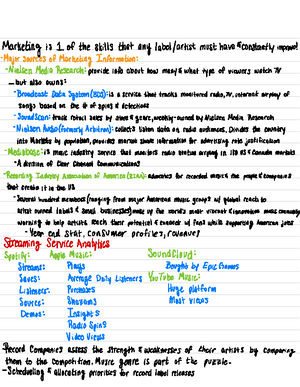 Marketing is 1 of the skills that any label/artist must have & constantly improve!
-Major Sources of Marketing Information:
-Nielsen Media Research: provide info about how many & what type of viewers watch TV
-but also owns:
-Broadcast Data System (BDS): is a service that tracks monitored radio, TV, internet airplay of
songs based on the # of spins & detections
-SoundScan: track retail sales by store & genre, weekly-owned by Nielsen Media Research
-Nielsen Audio (formerly Arbitron): collects listen data on radio audiences, Divides the country
into Markets by population, provides market share information for advertising rate justification
-Mediabase: is music industry service that monitors radio station airplay in 180 US & Canada markets
-A division of Clear Channel Communications
-Recording Industry Association of America (RIAA): Advocates for recorded music & the people & companies
that create it in the US
-Several hundred members (ranging from major American music groups w/ global reach to
artist owned labels & small businesses) make up the world's most vibrant & innovative music community
working to help artists reach their potential & connect w/ fans while supporting American jobs
-Year end stat, consumer profiles, revenue
Streaming Service Analytics
Spotify: Apple Music: SoundCloud:
Streams: Plays Bought by Epic Games
Saves: Average Daily Listeners YouTube Music:
Listeners: Purchases Huge platform
Source: Shazams Most views
Demos: Insights
Radio Spins
Video Views
-Record Companies assess the strength & weaknesses of their artists by comparing
them to the Competition. Music genre is part of the puzzle.
-Scheduling & allocating priorities for record label releases